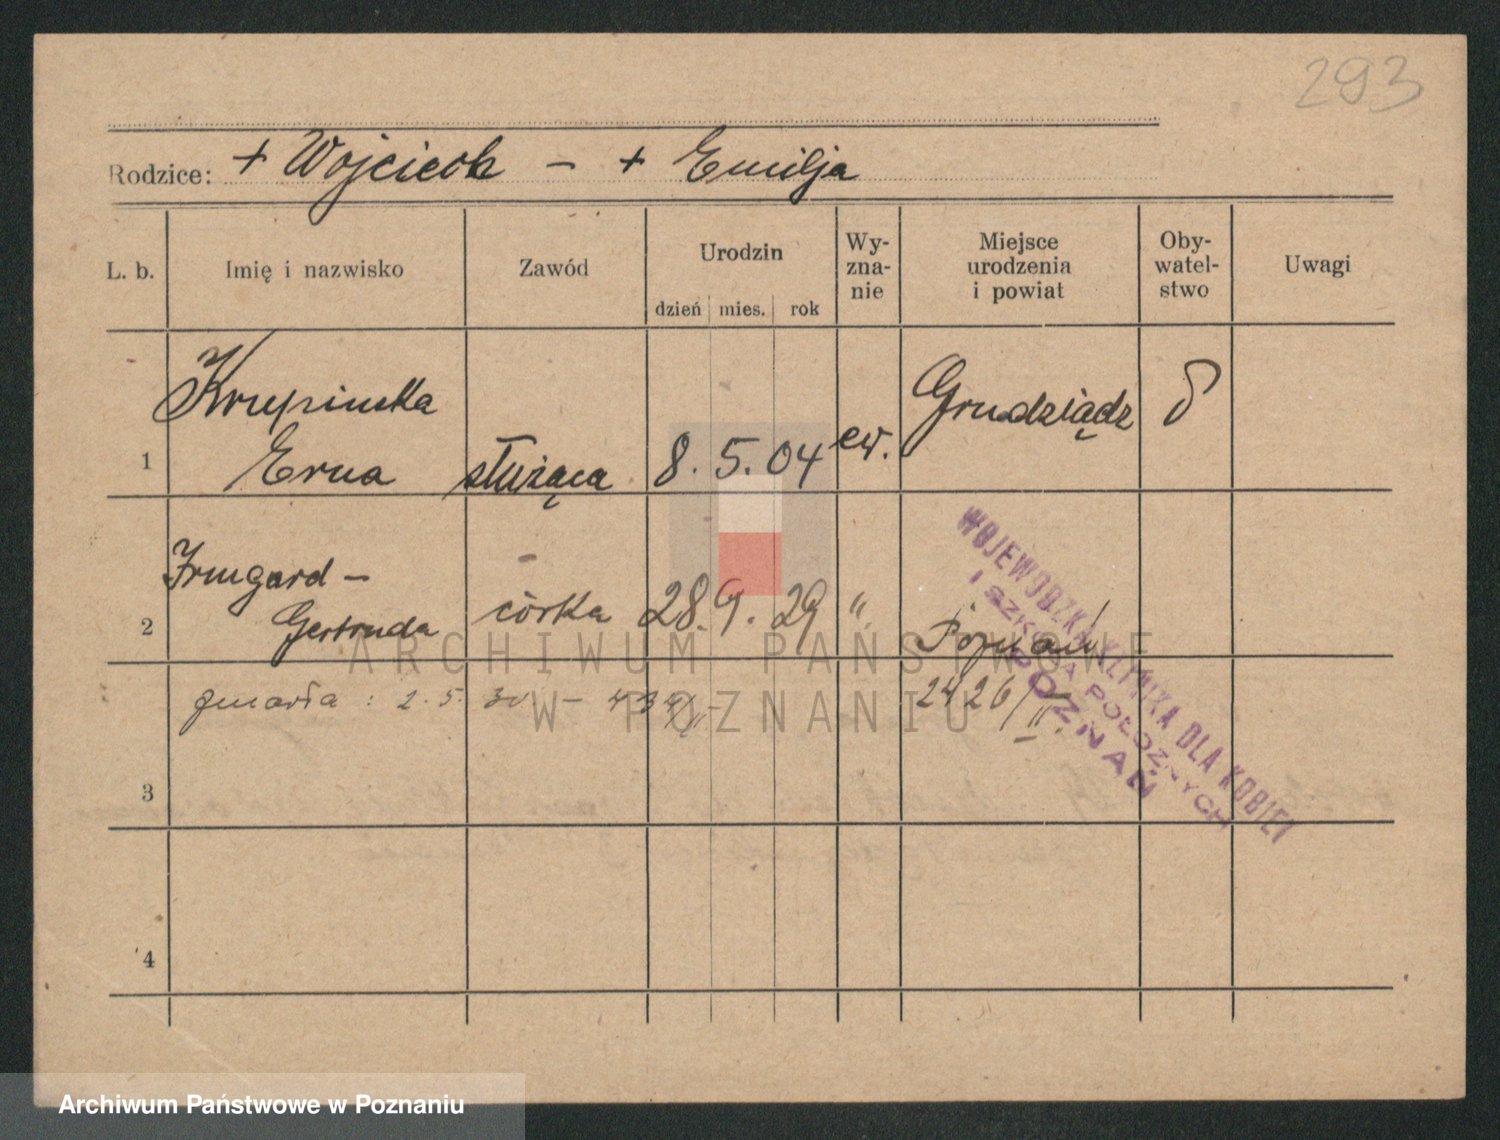 293
Rodzice: + Wojciech – + Emilja
L. b. Imię i nazwisko Zawód Urodzin Wy-zna-nie Miejsce urodzenia i powiat Oby-watel-stwo Uwagi
dzień mies. rok
Krupinska Grudziądz
1 Erna służąca 8. 5. 04 ew.
Irmgard –
2 Gertruda córka 28. 9. 29 " Poznań
zmarła : 2. 5. 30 –
2426/II.
WOJEWÓDZKA KLINIKA DLA KOBIET
I SZKOŁA POŁOŻNYCH
POZNAŃ
3
4
ARCHIWUM PAŃSTWOWE
W POZNANIU
Archiwum Państwowe w Poznaniu